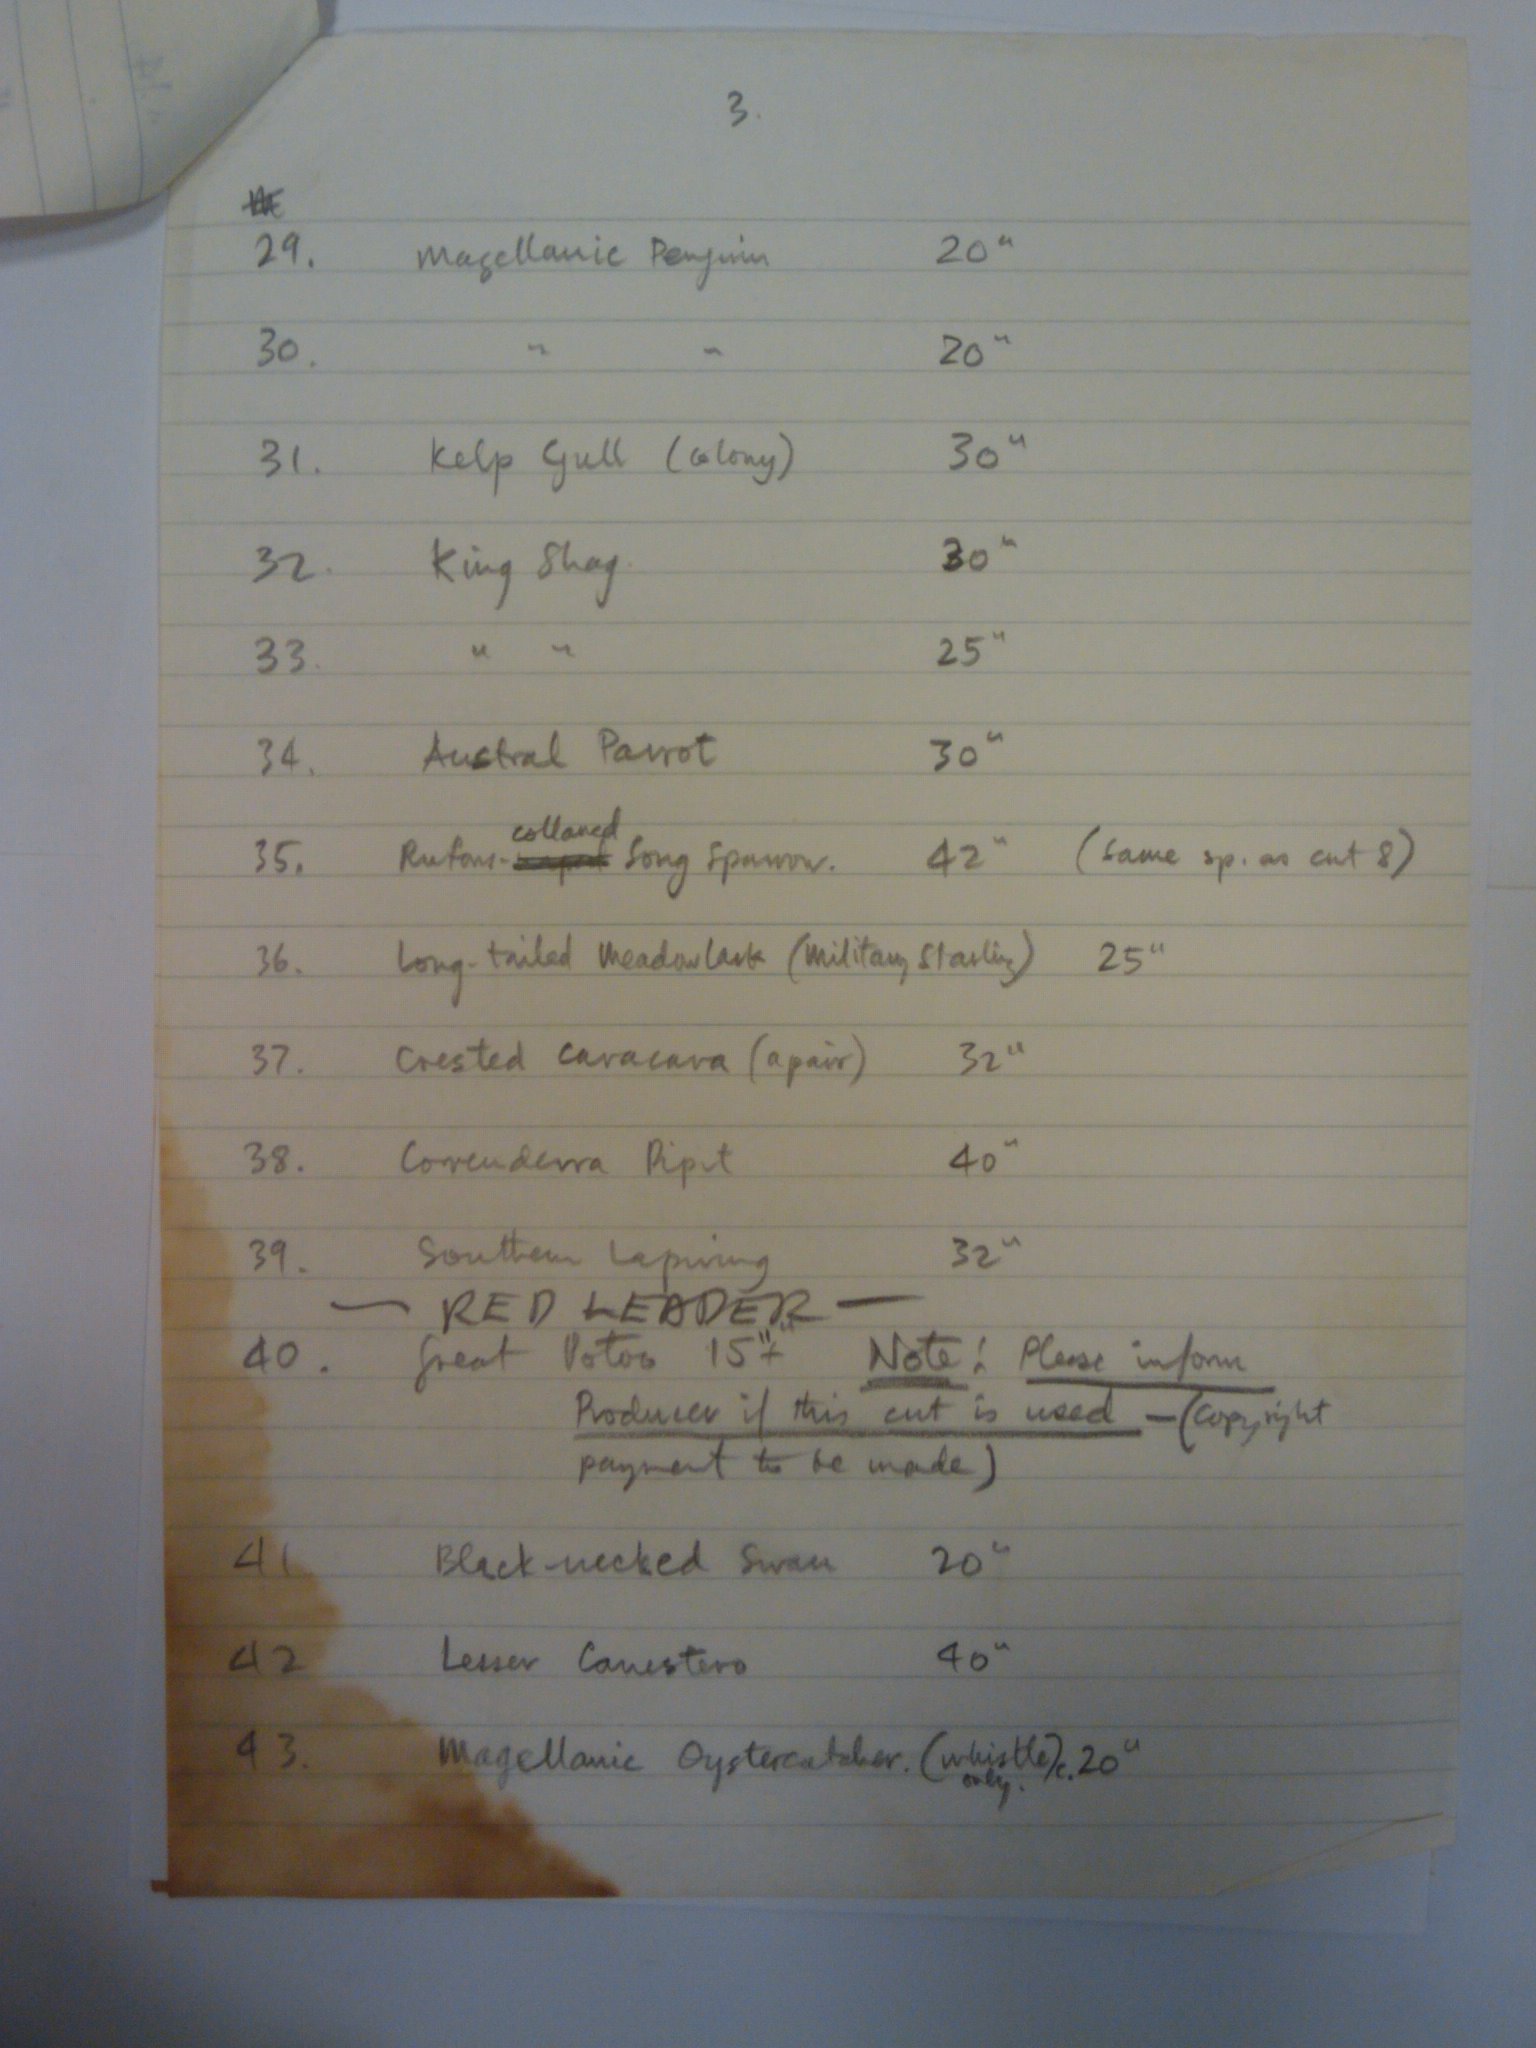 3.
29. Magellanic Penguin 20"
30. " " 20"
31. Kelp Gull (colony) 30"
32. King Shag. 30"
33. " " 25"
34. Austral Parrot 30"
collared
35. Rufous- Song Sparrow. 42" (same sp. as cut 8)
36. Long-tailed Meadowlark (Military Starling) 25"
37. Crested Caracara (a pair) 32"
38. Correnderra Pipit 40"
39. Southern Lapwing 32"
— RED LEADER —
40. Great Potoo 15"+ Note: Please inform
Producer if this cut is used — (Copyright
payment to be made)
41 Black-necked Swan 20"
42 Lesser Canestero 40"
43. Magellanic Oystercatcher. (whistle) c. 20"
only.